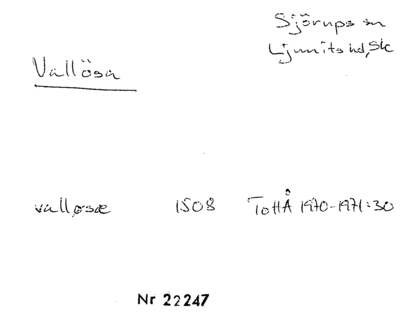 Sjörups sn
Ljunits hd, Sk
Vallösa
valløsæ 1508 TottÅ 1970-1971:30
Nr 22247